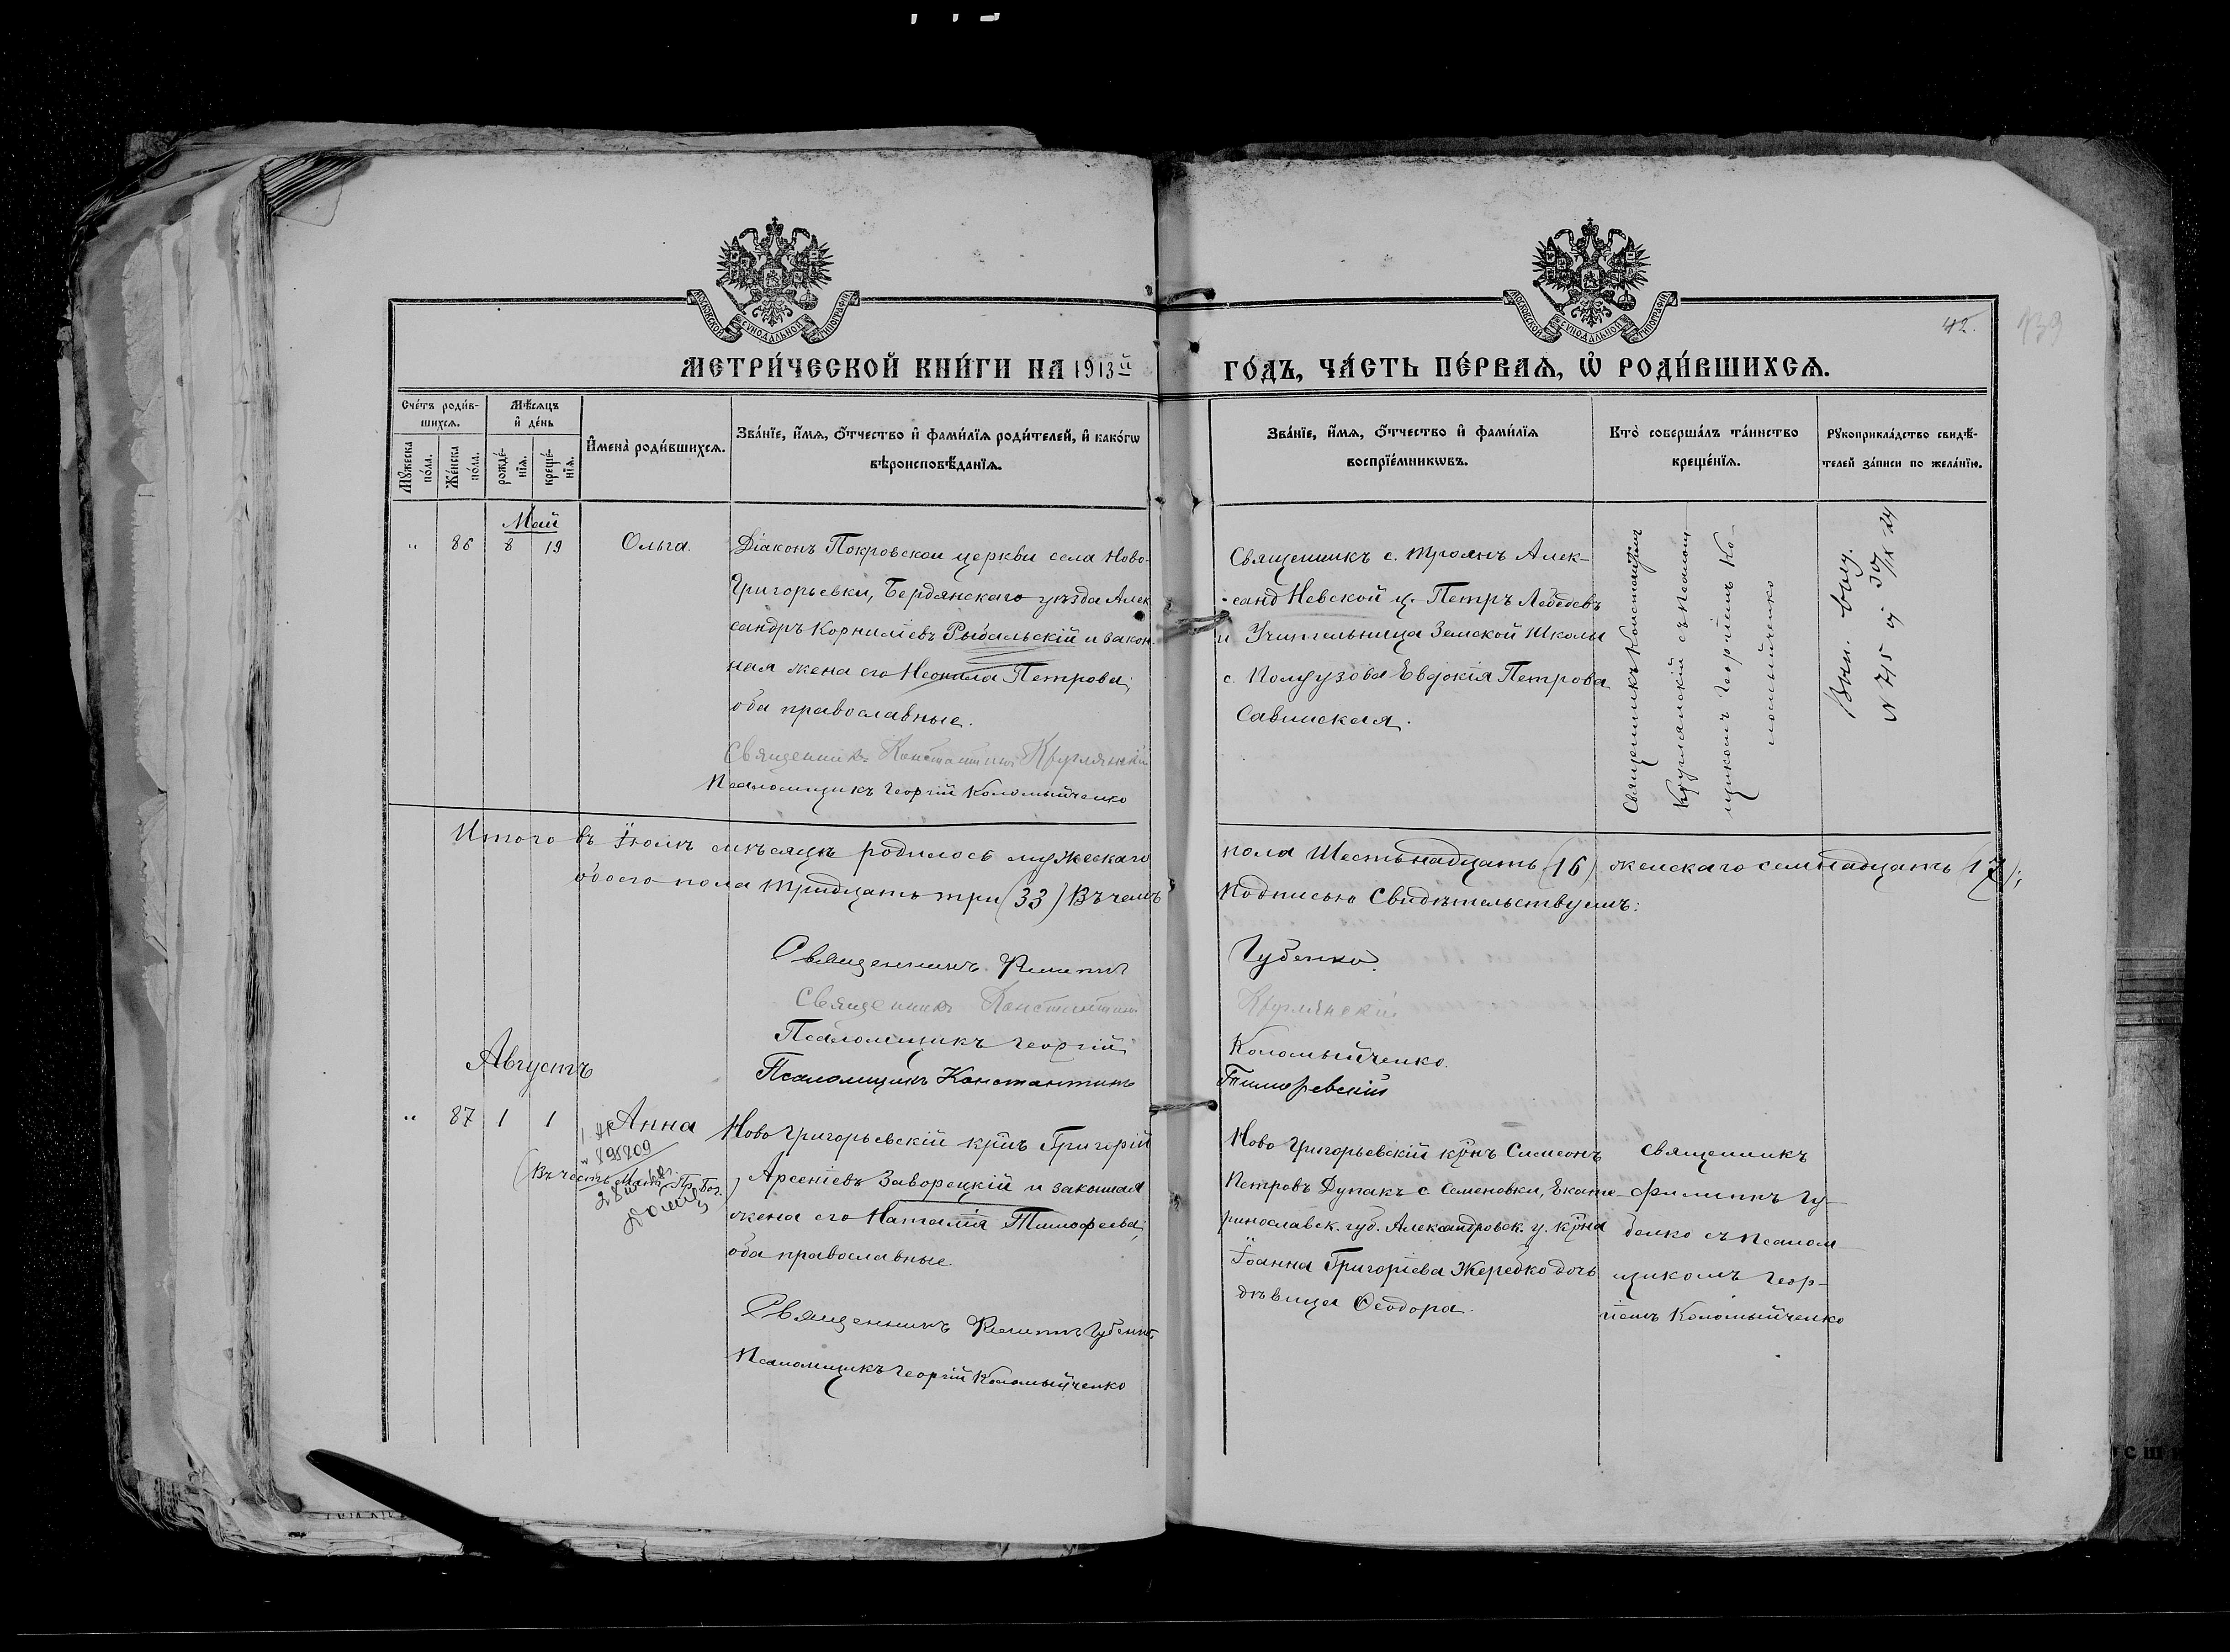 МОСКОВСКОЙ СѴНОДАЛЬНОЙ ТИПОГРАФІИ
МОСКОВСКОЙ СѴНОДАЛЬНОЙ ТИПОГРАФІИ
42.
139
МЕТРИ́ЧЕСКОЙ КНИ́ГИ НА 1913й
ГО́ДЪ, ЧА́СТЬ ПЕ́РВАѦ, Ѡ҆ РОДИ́ВШИХСѦ.
Сче́тъ роди́в-
шихсѧ.
Мѣ́сѧцъ
и҆ де́нь
Мꙋ́жеска
по́ла.
Же́нска
по́ла.
рожде́-
нїѧ.
креще́-
нїѧ.
И҆мена̀ роди́вшихсѧ.
Зва́нїе, и҆́мѧ, ѻ҆́тчество и҆ фами́лїѧ роди́телей, и҆ како́гѡ
вѣроисповѣ́данїѧ.
Зва́нїе, и҆́мѧ, ѻ҆́тчество и҆ фами́лїѧ
воспрїе́мникѡвъ.
Кто̀ соверша́лъ та́инство
креще́нїѧ.
Рꙋкоприкла́дство свидѣ́-
телей за́писи по жела́нїю.
Май
" 86 8 19 Ольга.
Діаконъ Покровской церкви села Ново-
Григорьевки, Бердянскаго уѣзда Алек
сандръ Корниліевъ Рыбальскій и закон
ная жена его Неонила Петрова;
оба православные.
Священникъ Константинъ Круглянскій
Псаломщикъ Георгій Коломыйченко
Священникъ с. Троянъ Алек-
санд Невской ц. Петръ Лебедевъ
и Учительница Земской Школы
с. Полузова Евдокія Петрова
Савинская.
Священникъ Константинъ
Круглянскій съ Псалом
щикомъ Георгіемъ Ко-
ломыйченко
Вып. выу.
N 745 30/IX 24
Итого въ Іюлѣ мѣсяцѣ родилось мужескаго
пола Шестьнадцать (16) женскаго семнадцать (17);
обоего пола тридцать три (33) Въ чемъ
Подписью Свидѣтельствуемъ:
Священникъ Филиппъ
Губенко.
Священникъ Константинъ
Круглянскій
Псаломщикъ Георгій
Коломыйченко.
Псаломщикъ Константинъ
Тимофевскій
Августъ
" 87 1 1 Анна
898209
(Въ честь Мат. Пр. Бог.)
28
Ново Григорьевскій крнъ Григорій
Арсеніевъ Заворецкій и законная
жена его Наталія Тимофеева;
оба православные.
Священникъ Филиппъ Губенко
Псаломщикъ Георгій Коломыйченко
Ново Григорьевскій крнъ Симеонъ
Петровъ Дупакъ с. Семеновки, Екате-
ринославск. губ. Александровск. у. крна
Іоанна Григоріева Жеребко дочь
дѣвица Ѳеодора.
Священникъ
Филиппъ Гу-
бенко съ Псалом-
щикомъ Геор-
гіемъ Коломыйченко